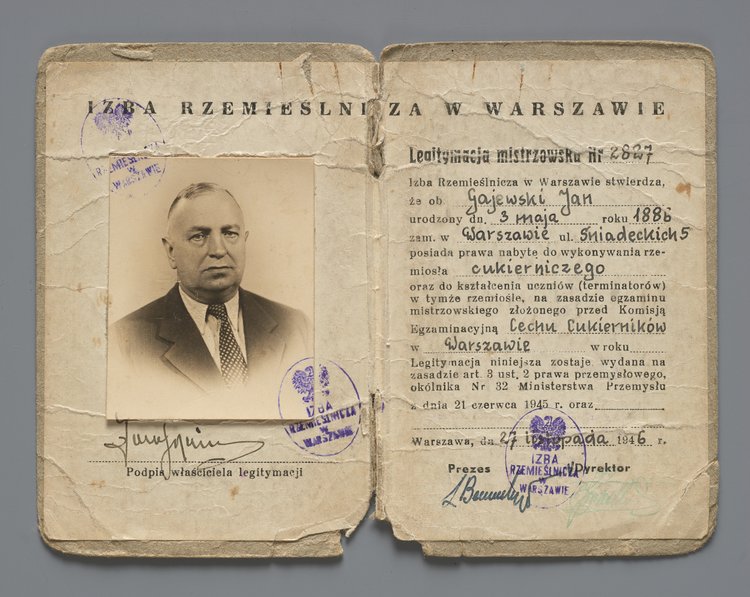 IZBA RZEMIEŚLNICZA W WARSZAWIE
RZEMIEŚLNICZA
W
WARSZAWIE
IZBA
RZEMIEŚLNICZA
W
WARSZAWIE
Podpis właściciela legitymacji
Legitymacja mistrzowska Nr 2827
Izba Rzemieślnicza w Warszawie stwierdza,
że ob. Gajewski Jan
urodzony dn. 3 maja roku 1886
zam. w Warszawie ul. Śniadeckich 5
posiada prawa nabyte do wykonywania rze-
miosła cukierniczego
oraz do kształcenia uczniów (terminatorów)
w tymże rzemiośle, na zasadzie egzaminu
mistrzowskiego złożonego przed Komisją
Egzaminacyjną Cechu Cukierników
w Warszawie w roku
Legitymacja niniejsza zostaje wydana na
zasadzie art. 3 ust. 2 prawa przemysłowego,
okólnika Nr 32 Ministerstwa Przemysłu
z dnia 21 czerwca 1945 r. oraz
Warszawa, dn. 27 listopada 1946 r.
Prezes Dyrektor
IZBA
RZEMIEŚLNICZA
W
WARSZAWIE